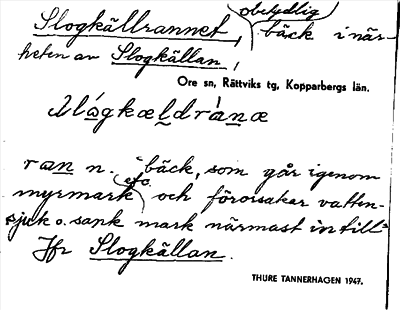 Slogkällrannet, obetydlig bäck i när-
heten av Slogkällan,
Ore sn, Rättviks tg, Kopparbergs län.
ran n. "bäck, som går igenom
myrmark efo och förorsakar vatten-
sjuk o. sank mark närmast intill"
Jfr Slogkällan.
THURE TANNERHAGEN 1947.